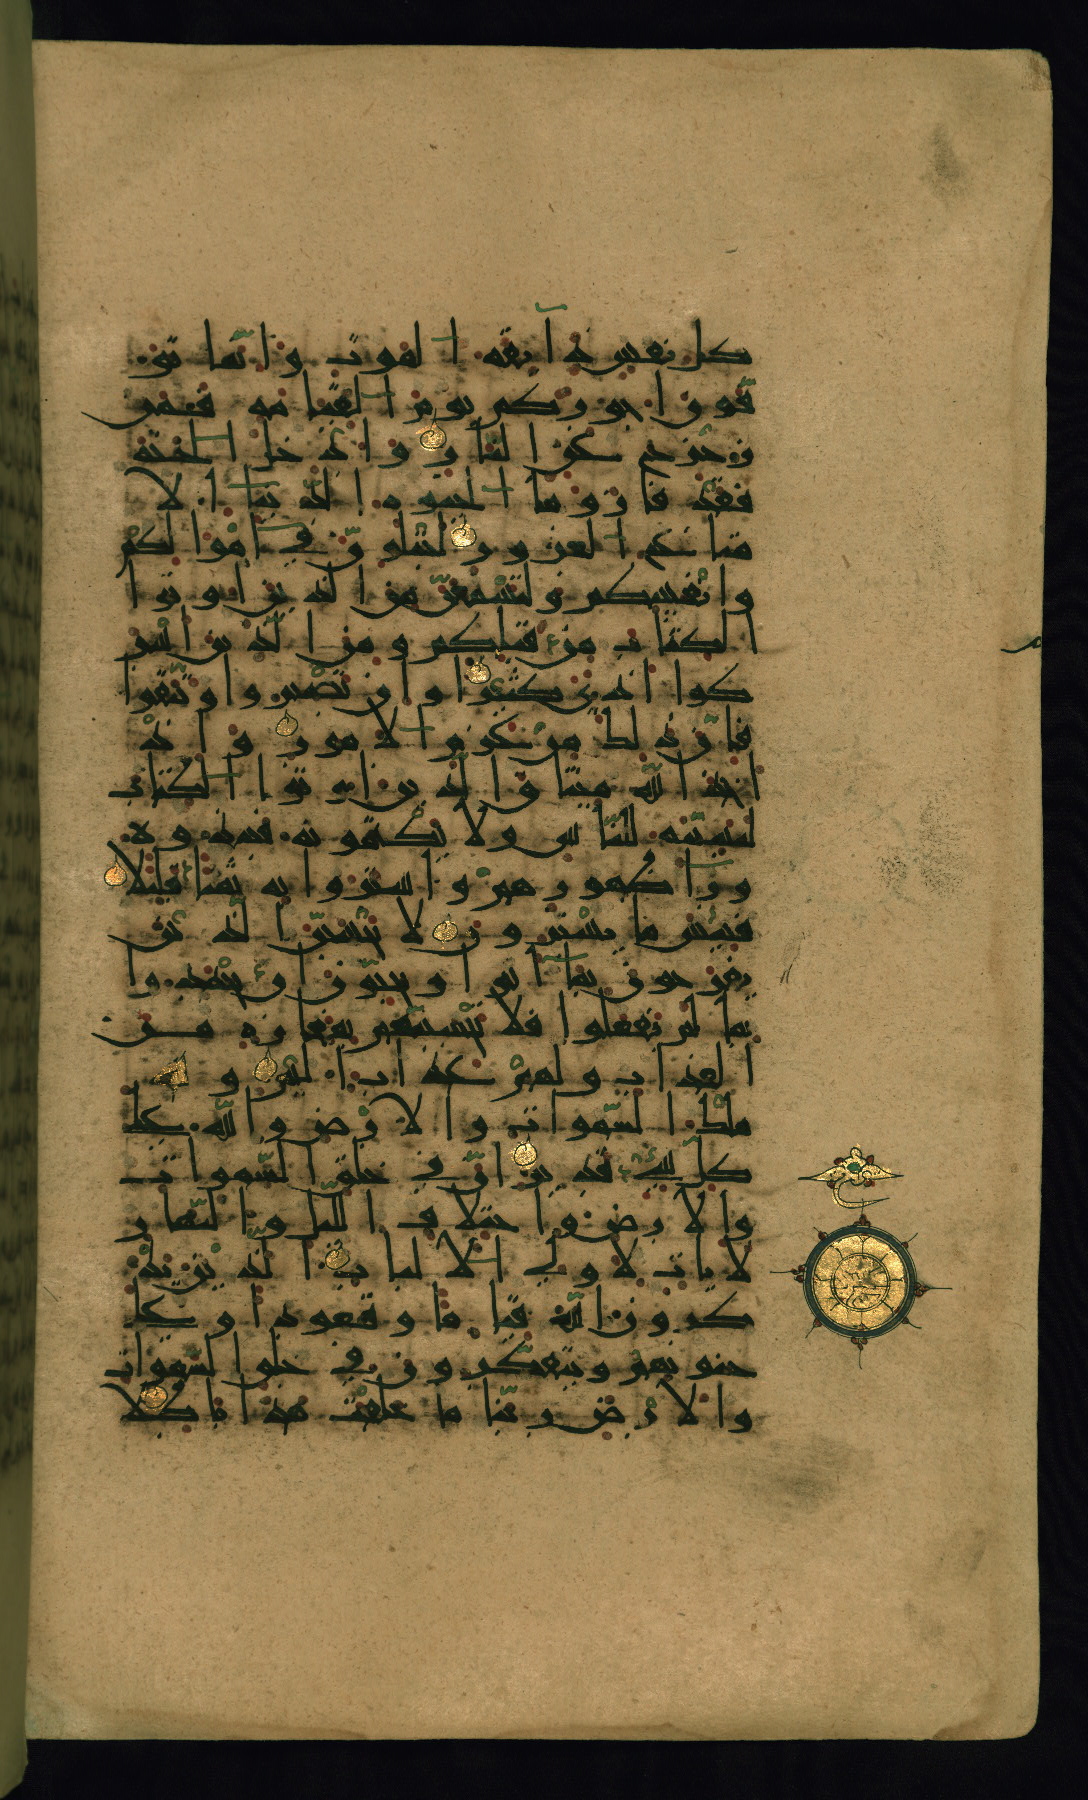 كل نفس ذآئقة الموت وانما تو
فون اجوركم يوم القيامة فمن
زحزح عن النار وادخل الجنة
فقد فاز وما الحيوة الدنيا الا
متاع الغرور لتبلون في اموالكم
وانفسكم ولتسمعن من الذين اوتوا
الكتاب من قبلكم ومن الذين اشر
كوا اذى كثيرا وان تصبروا وتتقوا
فان ذلك من عزم الامور واذ
اخذ الله ميثاق الذين اوتوا الكتاب
لتبيننه للناس ولا تكتمونه فنبذوه
ورآ ظهورهم واشتروا به ثمنا قليلا
فبئس ما يشترون لا تحسبن الذين
يفرحون بمآ اتوا ويحبون ان يحمدوا
بما لم يفعلوا فلا تحسبنهم بمفازة من
العذاب ولهم عذاب اليم ولله
ملك السموات والارض والله على
كل شيء قدير ان في خلق السموات
والارض واختلاف الليل والنهار
لايات لاولي الالباب الذين يذ
كرون الله قياما وقعودا وعلى
جنوبهم ويتفكرون في خلق السموات
والارض ربنا ما خلقت هذا باطلا